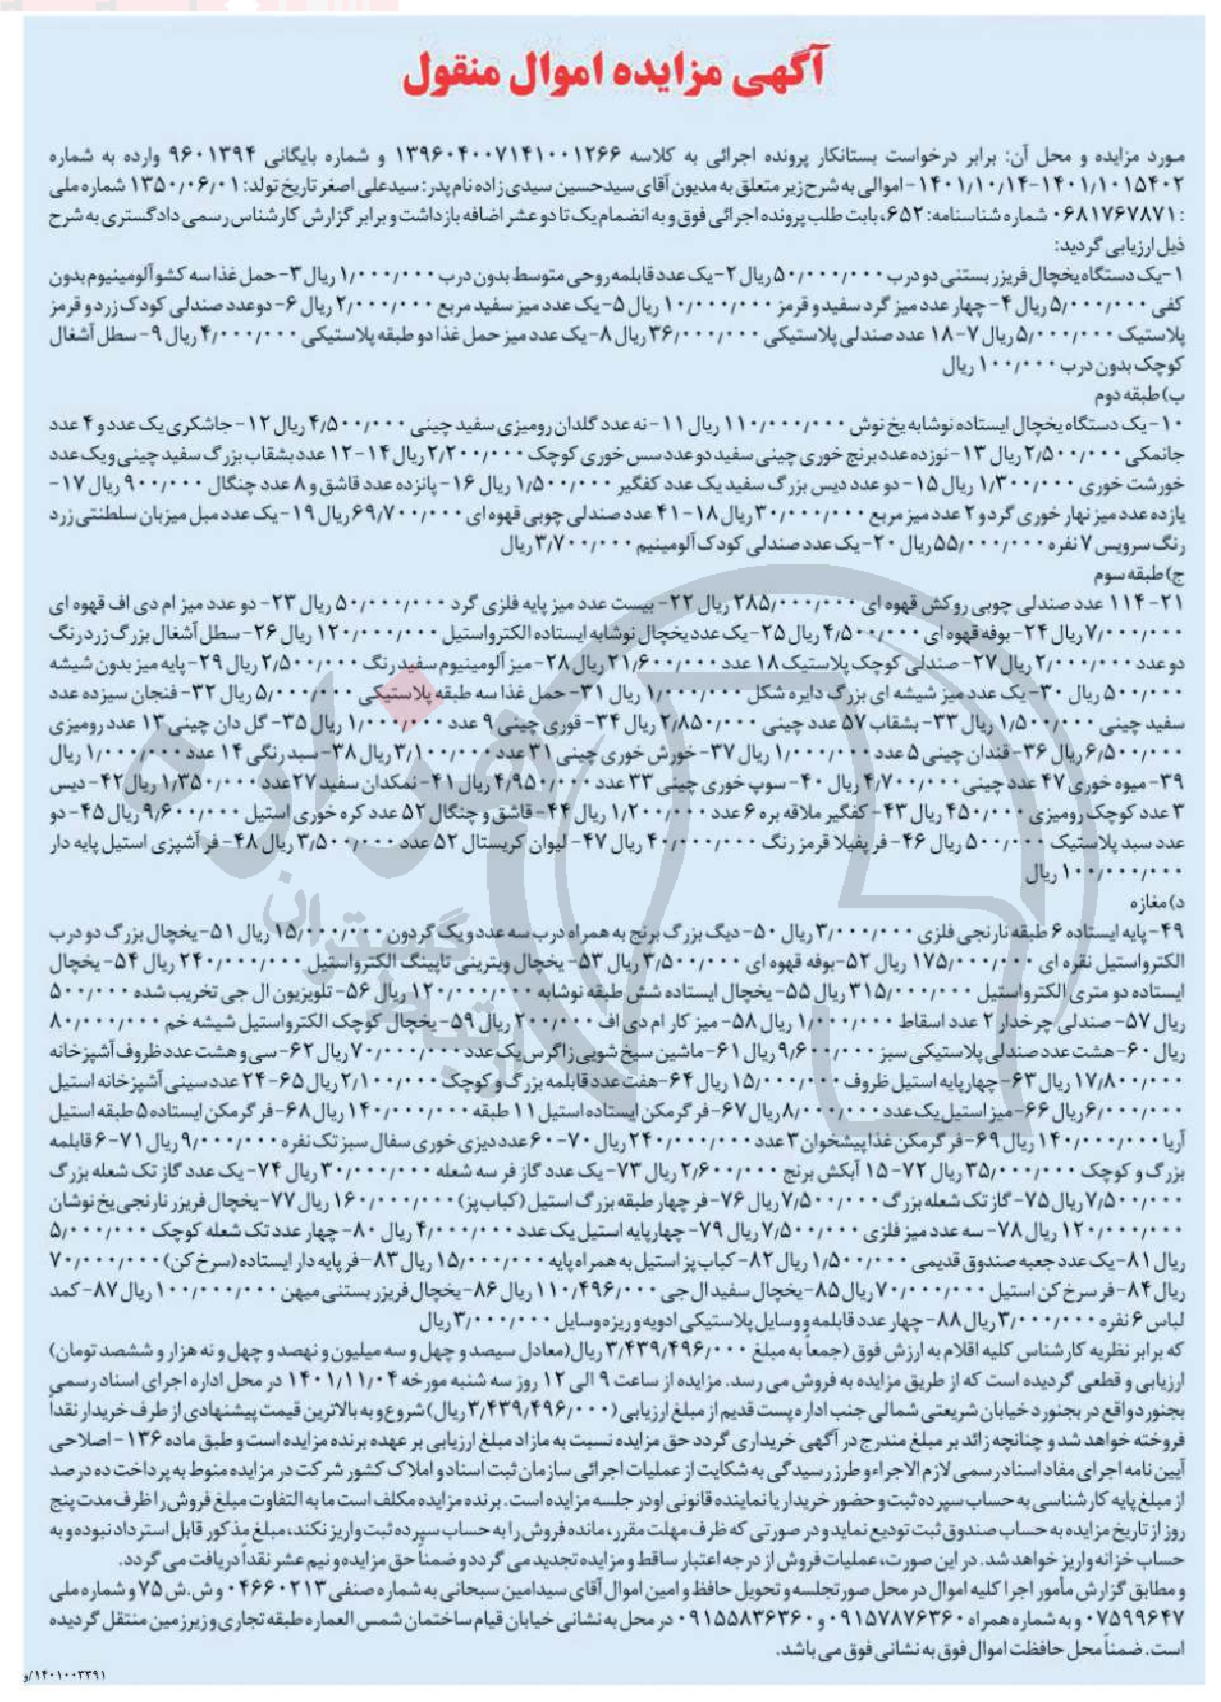 آگهی مزایده اموال منقول
مورد مزایده و محل آن: برابر درخواست بستانکار پرونده اجرائی به کلاسه ۱۳۹۶۰۴۰۰۷۱۴۱۰۰۱۲۶۶ و شماره بایگانی ۹۶۰۱۳۹۴ وارده به شماره
۱۴۰۱/۱۰/۱۴-۱۴۰۱/۱۰۱۵۴۰۲ -اموالی به شرح زیر متعلق به مدیون آقای سیدحسین سیدی زاده نام پدر: سیدعلی اصغر تاریخ تولد: ۱۳۵۰/۰۶/۰۱ شماره ملی
:۰۶۸۱۷۶۷۸۷۱ شماره شناسنامه: ۶۵۲، بابت طلب پرونده اجرائی فوق و به انضمام یک تا دو عشر اضافه بازداشت و برابر گزارش کارشناس رسمی دادگستری به شرح
ذیل ارزیابی گردید:
۱-یک دستگاه یخچال فریزر بستنی دو درب ۵۰/۰۰۰/۰۰۰ ریال ۲-یک عدد قابلمه روحی متوسط بدون درب ۱/۰۰۰/۰۰۰ ریال ۳-حمل غذا سه کشو آلومینیوم بدون
کفی ۵/۰۰۰/۰۰۰ ریال ۴-چهار عدد میز گرد سفید و قرمز ۱۰/۰۰۰/۰۰۰ ریال ۵-یک عدد میز سفید مربع ۲/۰۰۰/۰۰۰ ریال ۶-دو عدد صندلی کودک زرد و قرمز
پلاستیک ۵/۰۰۰/۰۰۰ ریال ۷-۱۸ عدد صندلی پلاستیکی ۳۶/۰۰۰/۰۰۰ ریال ۸-یک عدد میز حمل غذا دو طبقه پلاستیکی ۴/۰۰۰/۰۰۰ ریال ۹-سطل آشغال
کوچک بدون درب ۱۰۰/۰۰۰ ریال
ب) طبقه دوم
۱۰-یک دستگاه یخچال ایستاده نوشابه یخ نوش ۱۱۰/۰۰۰/۰۰۰ ریال ۱۱-نه عدد گلدان رومیزی سفید چینی ۴/۵۰۰/۰۰۰ ریال ۱۲-جاشکری یک عدد و ۴ عدد
جانمکی ۲/۵۰۰/۰۰۰ ریال ۱۳-نوزده عدد برنج خوری چینی سفید دو عدد سس خوری کوچک ۲/۲۰۰/۰۰۰ ریال ۱۴-۱۲ عدد بشقاب بزرگ سفید چینی و یک عدد
خورشت خوری ۱/۳۰۰/۰۰۰ ریال ۱۵-دو عدد دیس بزرگ سفید یک عدد کفگیر ۱/۵۰۰/۰۰۰ ریال ۱۶-پانزده عدد قاشق و ۸ عدد چنگال ۹۰۰/۰۰۰ ریال ۱۷-
یازده عدد میز نهار خوری گرد و ۲ عدد میز مربع ۳۰/۰۰۰/۰۰۰ ریال ۱۸-۴۱ عدد صندلی چوبی قهوه ای ۶۹/۷۰۰/۰۰۰ ریال ۱۹-یک عدد مبل میزبان سلطنتی زرد
رنگ سرویس ۷ نفره ۵۵/۰۰۰/۰۰۰ ریال ۲۰-یک عدد صندلی کودک آلومینیم ۳/۷۰۰/۰۰۰ ریال
ج) طبقه سوم
۲۱-۱۱۴ عدد صندلی چوبی روکش قهوه ای ۲۸۵/۰۰۰/۰۰۰ ریال ۲۲-بیست عدد میز پایه فلزی گرد ۵۰/۰۰۰/۰۰۰ ریال ۲۳-دو عدد میز ام دی اف قهوه ای
۷/۰۰۰/۰۰۰ ریال ۲۴-بوفه قهوه ای ۴/۵۰۰/۰۰۰ ریال ۲۵-یک عدد یخچال نوشابه ایستاده الکترواستیل ۱۲۰/۰۰۰/۰۰۰ ریال ۲۶-سطل آشغال بزرگ زرد رنگ
دو عدد ۲/۰۰۰/۰۰۰ ریال ۲۷-صندلی کوچک پلاستیک ۱۸ عدد ۲۱/۶۰۰/۰۰۰ ریال ۲۸-میز آلومینیوم سفید رنگ ۲/۵۰۰/۰۰۰ ریال ۲۹-پایه میز بدون شیشه
۵۰۰/۰۰۰ ریال ۳۰-یک عدد میز شیشه ای بزرگ دایره شکل ۱/۰۰۰/۰۰۰ ریال ۳۱-حمل غذا سه طبقه پلاستیکی ۵/۰۰۰/۰۰۰ ریال ۳۲-فنجان سیزده عدد
سفید چینی ۱/۵۰۰/۰۰۰ ریال ۳۳-بشقاب ۵۷ عدد چینی ۲/۸۵۰/۰۰۰ ریال ۳۴-قوری چینی ۹ عدد ۱/۰۰۰/۰۰۰ ریال ۳۵-گل دان چینی ۱۳ عدد رومیزی
۶/۵۰۰/۰۰۰ ریال ۳۶-قندان چینی ۵ عدد ۱/۰۰۰/۰۰۰ ریال ۳۷-خورش خوری چینی ۳۱ عدد ۳/۱۰۰/۰۰۰ ریال ۳۸-سبد رنگی ۱۴ عدد ۱/۰۰۰/۰۰۰ ریال
۳۹-میوه خوری ۴۷ عدد چینی ۴/۷۰۰/۰۰۰ ریال ۴۰-سوپ خوری چینی ۳۳ عدد ۴/۹۵۰/۰۰۰ ریال ۴۱-نمکدان سفید ۲۷ عدد ۱/۳۵۰/۰۰۰ ریال ۴۲-دیس
۳ عدد کوچک رومیزی ۴۵۰/۰۰۰ ریال ۴۳-کفگیر ملاقه بره ۶ عدد ۱/۲۰۰/۰۰۰ ریال ۴۴-قاشق و چنگال ۵۲ عدد کره خوری استیل ۹/۶۰۰/۰۰۰ ریال ۴۵-دو
عدد سبد پلاستیک ۵۰۰/۰۰۰ ریال ۴۶-فر یفیلا قرمز رنگ ۴۰/۰۰۰/۰۰۰ ریال ۴۷-لیوان کریستال ۵۲ عدد ۳/۵۰۰/۰۰۰ ریال ۴۸-فر آشپزی استیل پایه دار
۱۰۰/۰۰۰/۰۰۰ ریال
د) مغازه
۴۹-پایه ایستاده ۶ طبقه نارنجی فلزی ۳/۰۰۰/۰۰۰ ریال ۵۰-دیگ بزرگ برنج به همراه درب سه عدد و یک گردون ۱۵/۰۰۰/۰۰۰ ریال ۵۱-یخچال بزرگ دو درب
الکترواستیل نقره ای ۱۷۵/۰۰۰/۰۰۰ ریال ۵۲-بوفه قهوه ای ۳/۵۰۰/۰۰۰ ریال ۵۳-یخچال ویترینی تاپینگ الکترواستیل ۲۴۰/۰۰۰/۰۰۰ ریال ۵۴-یخچال
ایستاده دو متری الکترواستیل ۳۱۵/۰۰۰/۰۰۰ ریال ۵۵-یخچال ایستاده شش طبقه نوشابه ۱۲۰/۰۰۰/۰۰۰ ریال ۵۶-تلویزیون ال جی تخریب شده ۵۰۰/۰۰۰
ریال ۵۷-صندلی چرخدار ۲ عدد اسقاط ۱/۰۰۰/۰۰۰ ریال ۵۸-میز کار ام دی اف ۲۰۰/۰۰۰ ریال ۵۹-یخچال کوچک الکترواستیل شیشه خم ۸۰/۰۰۰/۰۰۰
ریال ۶۰-هشت عدد صندلی پلاستیکی سبز ۹/۶۰۰/۰۰۰ ریال ۶۱-ماشین سیخ شویی زاگرس یک عدد ۷۰/۰۰۰/۰۰۰ ریال ۶۲-سی و هشت عدد ظروف آشپزخانه
۱۷/۸۰۰/۰۰۰ ریال ۶۳-چهارپایه استیل ظروف ۱۵/۰۰۰/۰۰۰ ریال ۶۴-هفت عدد قابلمه بزرگ و کوچک ۲/۱۰۰/۰۰۰ ریال ۶۵-۲۴ عدد سینی آشپزخانه استیل
۶/۰۰۰/۰۰۰ ریال ۶۶-میز استیل یک عدد ۸/۰۰۰/۰۰۰ ریال ۶۷-فر گرمکن ایستاده استیل ۱۱ طبقه ۱۴۰/۰۰۰/۰۰۰ ریال ۶۸-فر گرمکن ایستاده ۵ طبقه استیل
آریا ۱۴۰/۰۰۰/۰۰۰ ریال ۶۹-فر گرمکن غذا پیشخوان ۳ عدد ۲۴۰/۰۰۰/۰۰۰ ریال ۷۰-۶۰ عدد دیزی خوری سفال سبز تک نفره ۹/۰۰۰/۰۰۰ ریال ۷۱-۶ قابلمه
بزرگ و کوچک ۳۵/۰۰۰/۰۰۰ ریال ۷۲-۱۵ آبکش برنج ۲/۶۰۰/۰۰۰ ریال ۷۳-یک عدد گاز فر سه شعله ۳۰/۰۰۰/۰۰۰ ریال ۷۴-یک عدد گاز تک شعله بزرگ
۷/۵۰۰/۰۰۰ ریال ۷۵-گاز تک شعله بزرگ ۷/۵۰۰/۰۰۰ ریال ۷۶-فر چهار طبقه بزرگ استیل (کباب پز) ۱۶۰/۰۰۰/۰۰۰ ریال ۷۷-یخچال فریزر نارنجی یخ نوشان
۱۲۰/۰۰۰/۰۰۰ ریال ۷۸-سه عدد میز فلزی ۷/۵۰۰/۰۰۰ ریال ۷۹-چهارپایه استیل یک عدد ۴/۰۰۰/۰۰۰ ریال ۸۰-چهار عدد تک شعله کوچک ۵/۰۰۰/۰۰۰
ریال ۸۱-یک عدد جعبه صندوق قدیمی ۱/۵۰۰/۰۰۰ ریال ۸۲-کباب پز استیل به همراه پایه ۱۵/۰۰۰/۰۰۰ ریال ۸۳-فر پایه دار ایستاده (سرخ کن) ۷۰/۰۰۰/۰۰۰
ریال ۸۴-فر سرخ کن استیل ۷۰/۰۰۰/۰۰۰ ریال ۸۵-یخچال سفید ال جی ۱۱۰/۴۹۶/۰۰۰ ریال ۸۶-یخچال فریزر بستنی میهن ۱۰۰/۰۰۰/۰۰۰ ریال ۸۷-کمد
لباس ۶ نفره ۳/۰۰۰/۰۰۰ ریال ۸۸-چهار عدد قابلمه و وسایل پلاستیکی ادویه و ریزه وسایل ۳/۰۰۰/۰۰۰ ریال
که برابر نظریه کارشناس کلیه اقلام به ارزش فوق (جمعاً به مبلغ ۳/۴۳۹/۴۹۶/۰۰۰ ریال (معادل سیصد و چهل و سه میلیون و نهصد و چهل و نه هزار و ششصد تومان)
ارزیابی و قطعی گردیده است که از طریق مزایده به فروش می رسد. مزایده از ساعت ۹ الی ۱۲ روز سه شنبه مورخه ۱۴۰۱/۱۱/۰۴ در محل اداره اجرای اسناد رسمی
بجنورد واقع در بجنورد خیابان شریعتی شمالی جنب اداره پست قدیم از مبلغ ارزیابی (۳/۴۳۹/۴۹۶/۰۰۰ ریال) شروع و به بالاترین قیمت پیشنهادی از طرف خریدار نقداً
فروخته خواهد شد و چنانچه زائد بر مبلغ مندرج در آگهی خریداری گردد حق مزایده نسبت به مازاد مبلغ ارزیابی بر عهده برنده مزایده است و طبق ماده ۱۳۶-اصلاحی
آیین نامه اجرای مفاد اسناد رسمی لازم الاجراء و طرز رسیدگی به شکایت از عملیات اجرائی سازمان ثبت اسناد و املاک کشور شرکت در مزایده منوط به پرداخت ده درصد
از مبلغ پایه کارشناسی به حساب سپرده ثبت و حضور خریدار یا نماینده قانونی او در جلسه مزایده است. برنده مزایده مکلف است ما به التفاوت مبلغ فروش را ظرف مدت پنج
روز از تاریخ مزایده به حساب صندوق ثبت تودیع نماید و در صورتی که ظرف مهلت مقرر، مانده فروش را به حساب سپرده ثبت واریز نکند، مبلغ مذکور قابل استرداد نبوده و به
حساب خزانه واریز خواهد شد. در این صورت، عملیات فروش از درجه اعتبار ساقط و مزایده تجدید می گردد و ضمناً حق مزایده و نیم عشر نقداً دریافت می گردد.
و مطابق گزارش مأمور اجرا کلیه اموال در محل صورتجلسه و تحویل حافظ و امین اموال آقای سیدامین سبحانی به شماره صنفی ۰۴۶۶۰۲۱۳ و ش.ش ۷۵ و شماره ملی
۰۷۵۹۹۶۴۷ و به شماره همراه ۰۹۱۵۷۸۷۶۳۶۰ و ۰۹۱۵۵۸۳۶۳۶۰ در محل به نشانی خیابان قیام ساختمان شمس العماره طبقه تجاری و زیرزمین منتقل گردیده
است. ضمناً محل حافظت اموال فوق به نشانی فوق می باشد.
۱۴۰۱۰۰۳۲۹۱/و